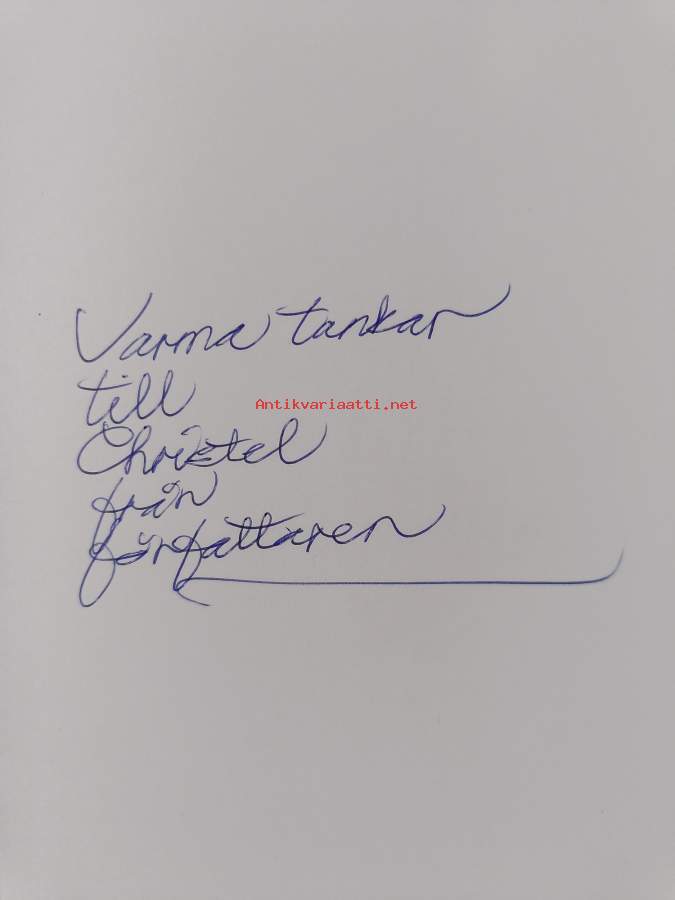 Varma tankar
till
Antikvariaatti.net
Christel
från
författaren